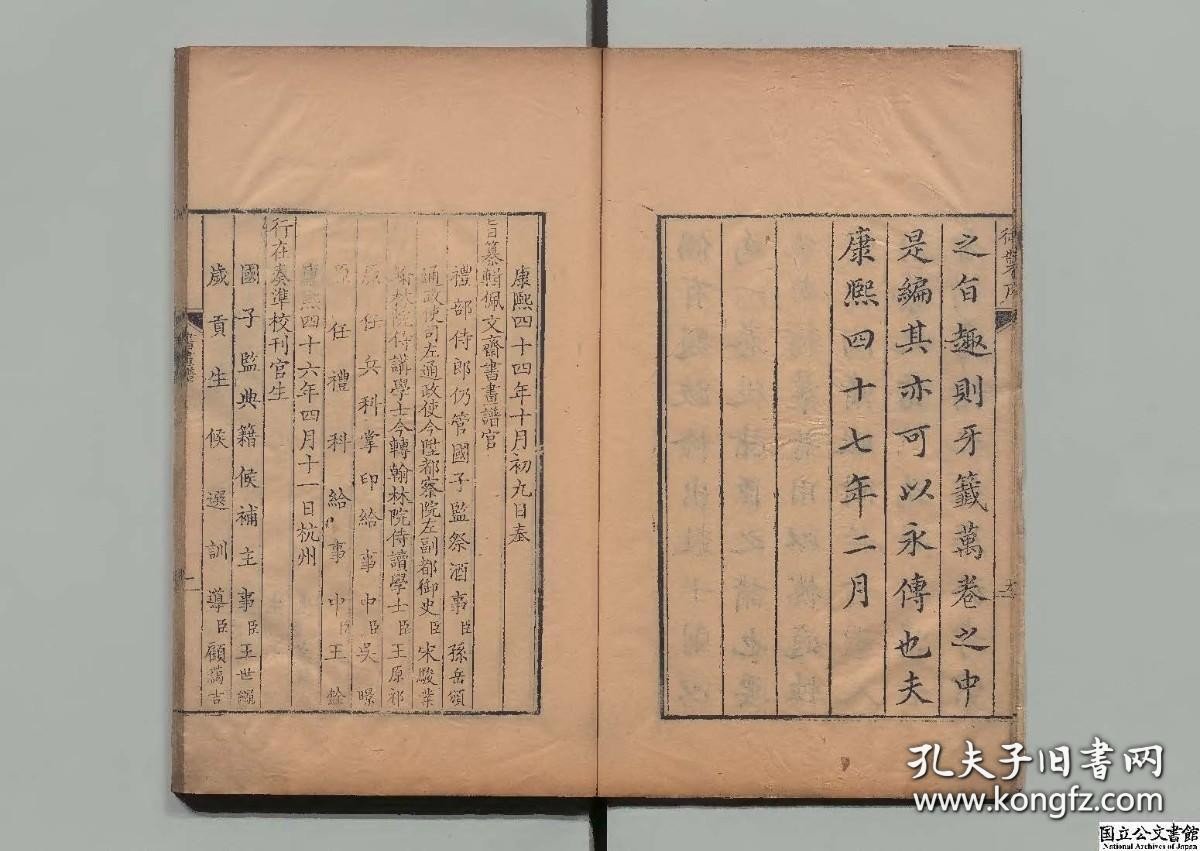 御製序
之旨趣則牙籤萬卷之中
是編其亦可以永傳也夫
康熙四十七年二月
康熙四十四年十月初九日奉
旨纂輯佩文齋書畫譜官
禮部侍郎仍管國子監祭酒事臣孫岳頒
通政使司左通政使今陞都察院左副都御史臣宋駿業
翰林院侍講學士今轉翰林院侍讀學士臣王原祁
原任兵科掌印給事中臣吳暻
原任禮科給事中臣王銓
康熙四十六年四月十一日杭州
行在奏準校刊官生
國子監典籍候補主事臣王世繩
歲貢生候選訓導臣顧藹吉
書畫譜
孔夫子旧书网
www.kongfz.com
国立公文書館
National Archives of Japan